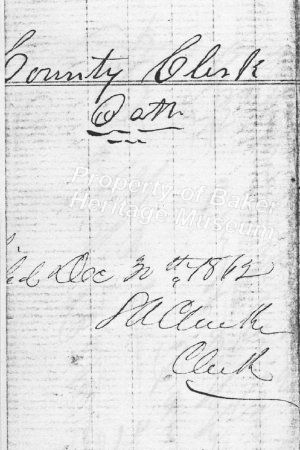 County Clerk
Oath
Property of Baker
Heritage Museum
Dec 1862
S A Clarke
Clerk